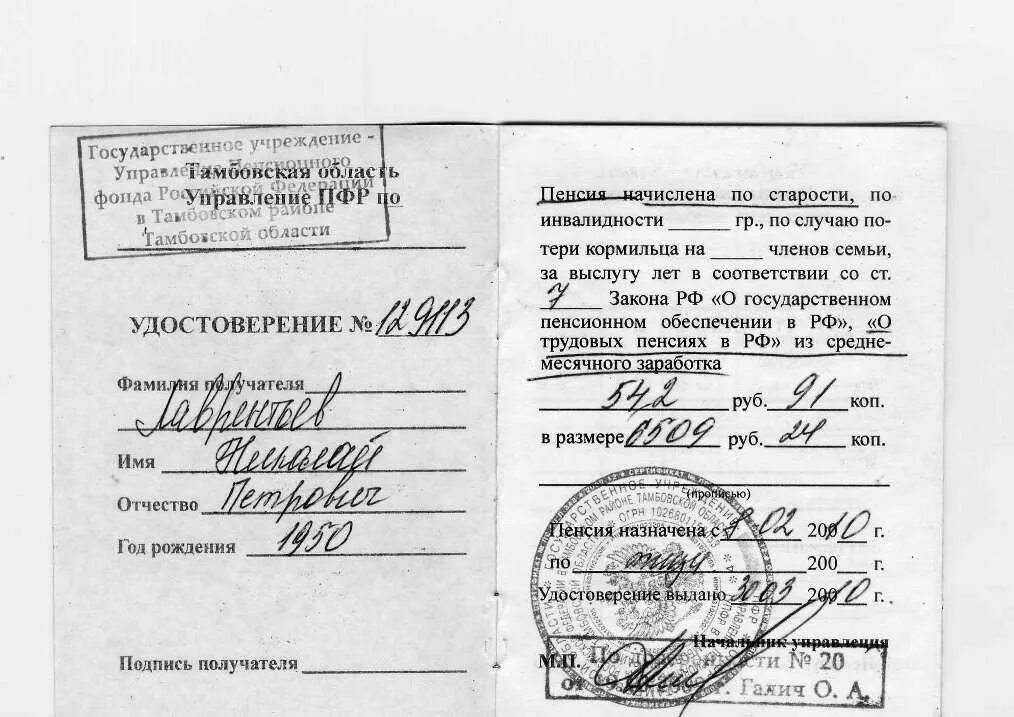 Государственное учреждение -
Управление Пенсионного
фонда Российской Федерации
в Тамбовском районе
Тамбовской области
Тамбовская область
Управление ПФР по
УДОСТОВЕРЕНИЕ № 129113
Фамилия получателя
Лаврентьев
Имя Николай
Отчество Петрович
Год рождения 1950
Подпись получателя
Пенсия начислена по старости, по
инвалидности гр., по случаю по-
тери кормильца на членов семьи,
за выслугу лет в соответствии со ст.
7 Закона РФ «О государственном
пенсионном обеспечении в РФ», «О
трудовых пенсиях в РФ» из средне-
месячного заработка
542 руб. 91 коп.
в размере 6509 руб. 24 коп.
(прописью)
Пенсия назначена с 02 2010 г.
по 200 г.
Удостоверение выдано 30 03 2010 г.
Начальник управления
М.П.
По доверенности № 20
от г. Галич О. А.